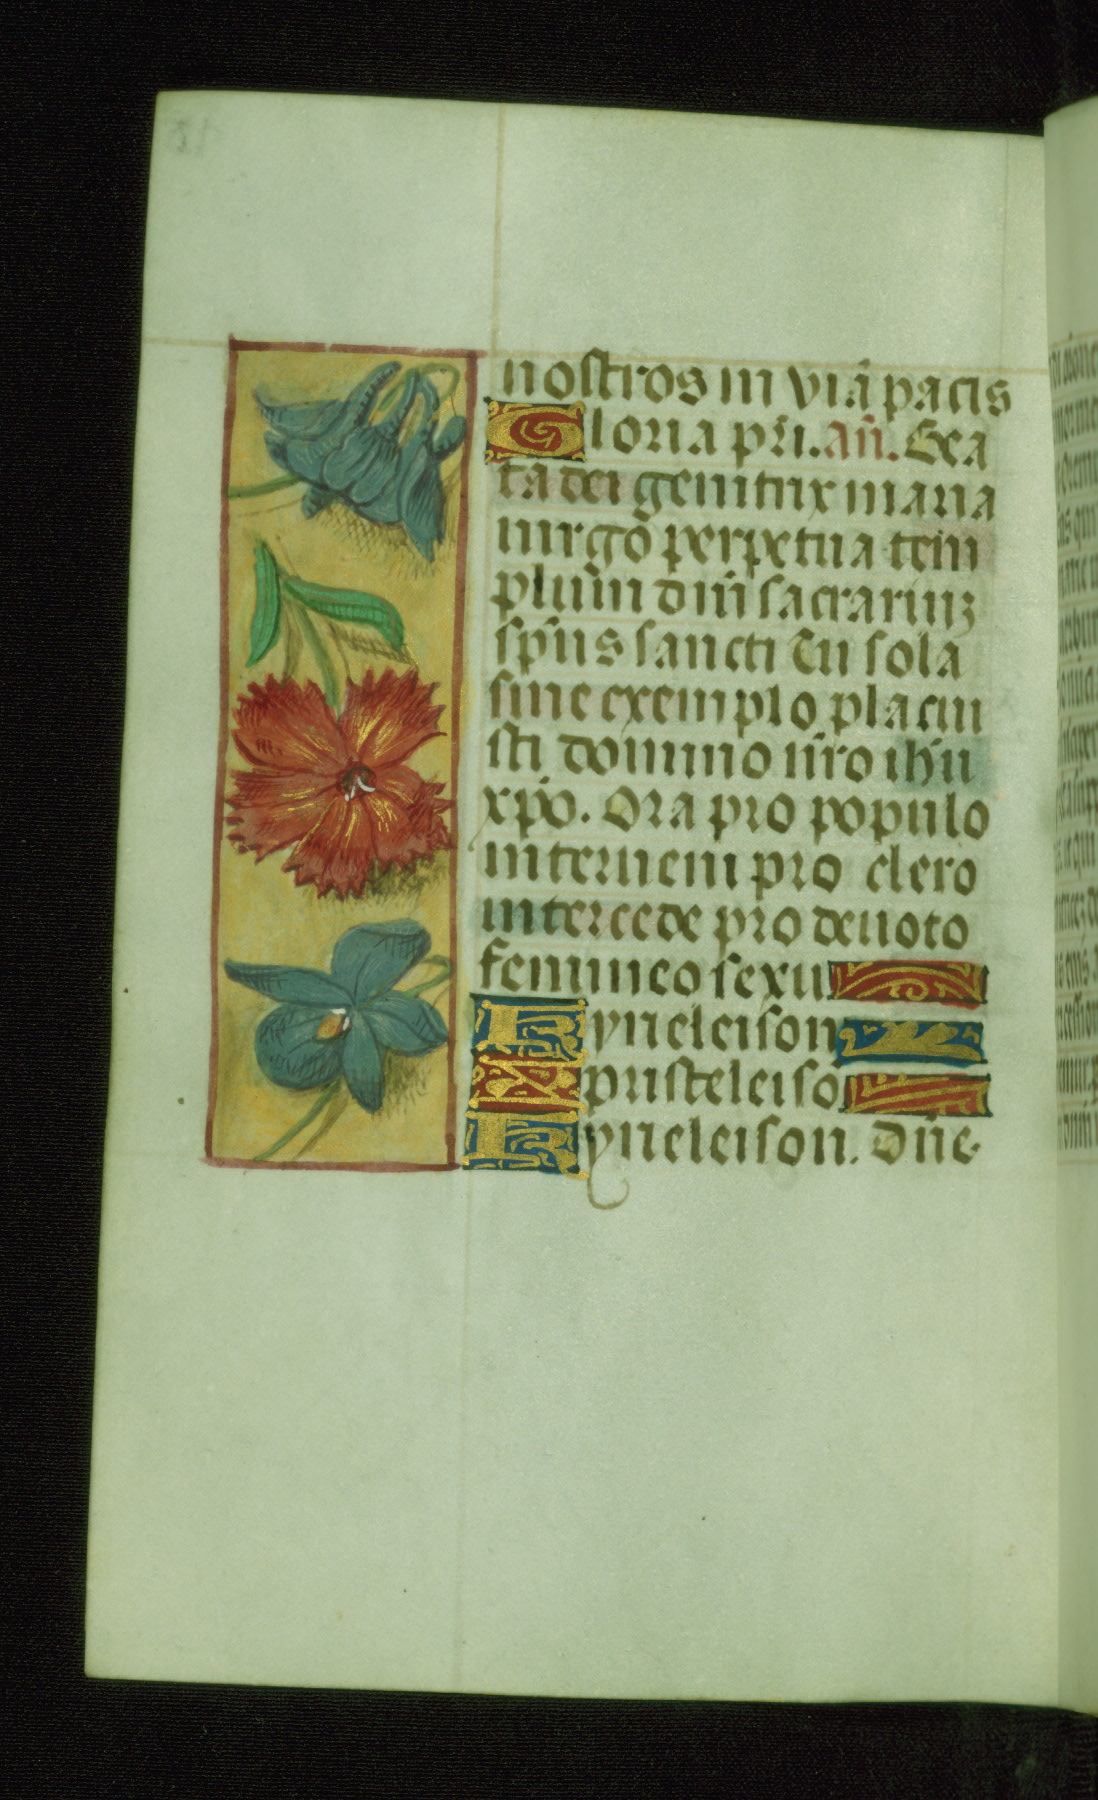 nostros in viā pacis
Gloria pr̄i. añ. Bea
ta dei genitrix maria
uirgo perpetua tem
plum dn̄i sacrariuz
sp̄us sancti Tu sola
sine exemplo placui
sti domino nr̄o ihū
xp̄o. Ora pro populo
interueni pro clero
intercede pro deuoto
femineo sexu
Kyrieleison
Xpristeleiso
Kyrieleison. Dn̄e